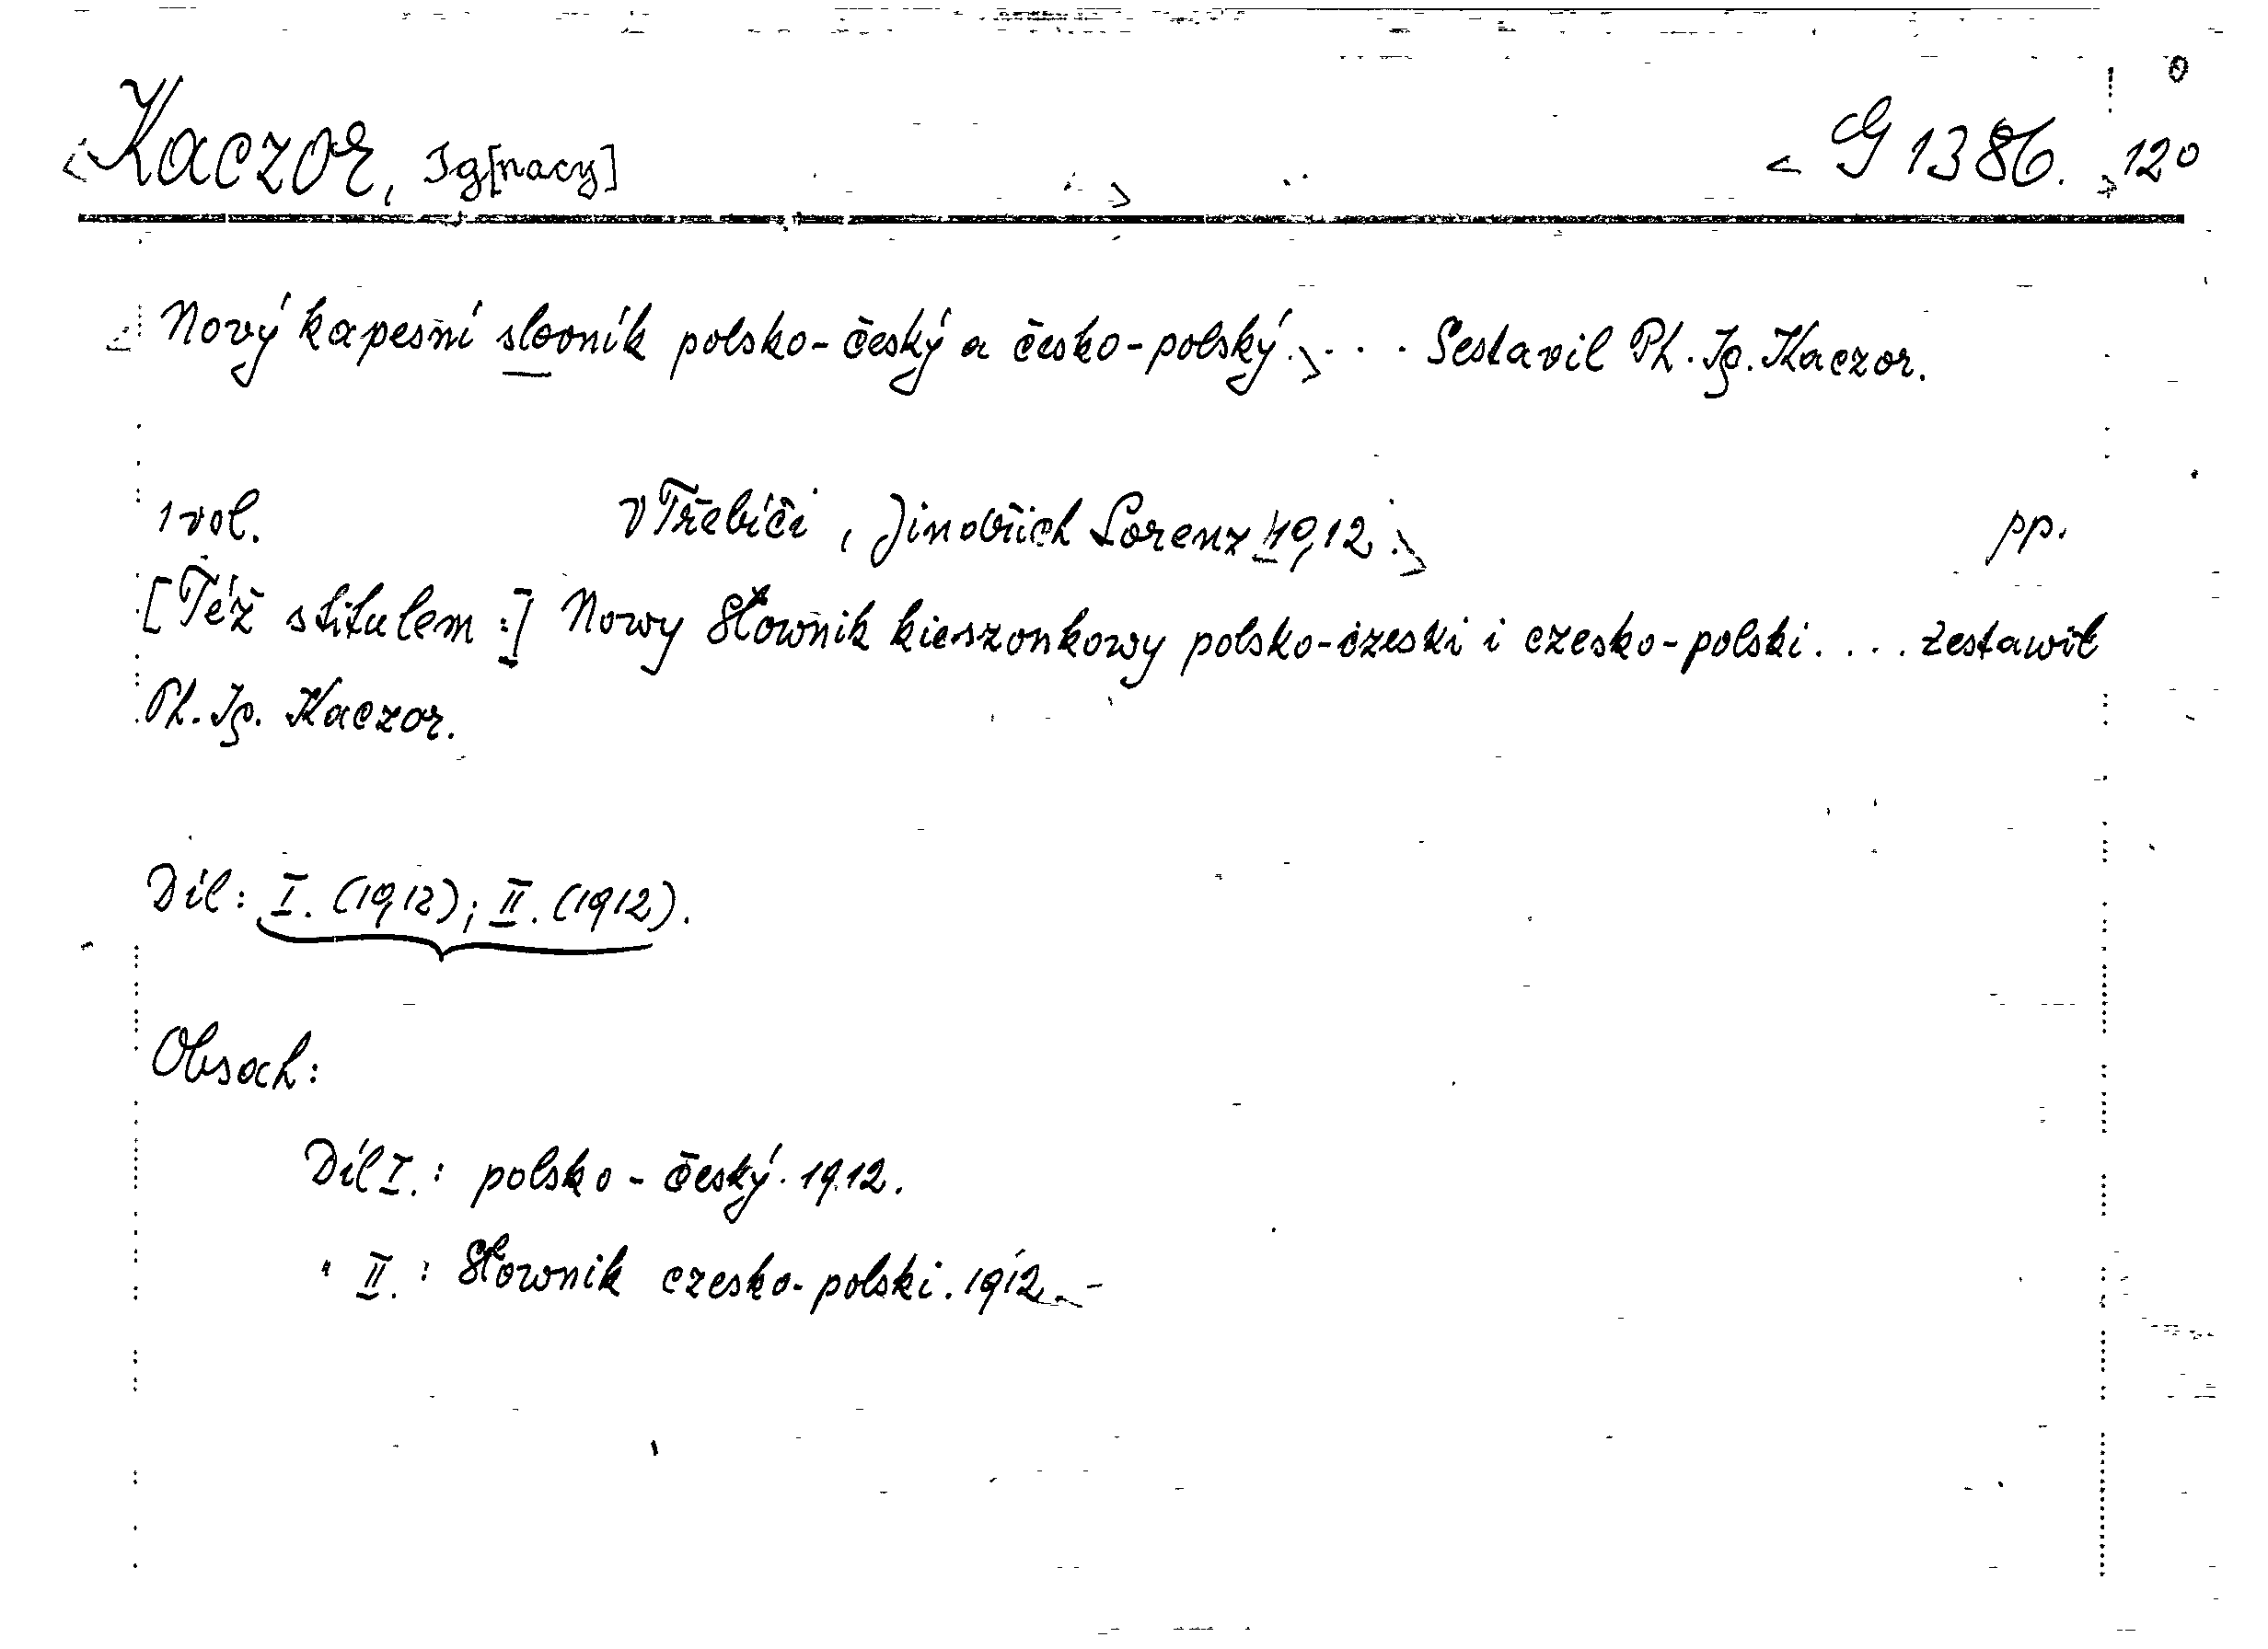 Kaczor, Ig[nacy] G 1386. 12°
Nový kapesní slovník polsko-český a česko-polský. . . . Sestavil Ph. Ig. Kaczor.
1 vol. V Třebíči, Jindřich Lorenz 1912. pp.
[Též s titulem:] Nowy Słownik kieszonkowy polsko-czeski i czesko-polski. . . . zestawił
Ph. Ig. Kaczor.
Díl: I. (1912); II. (1912).
Obsach:
Díl I.: polsko-český. 1912.
" II.: Słownik czesko-polski. 1912.-